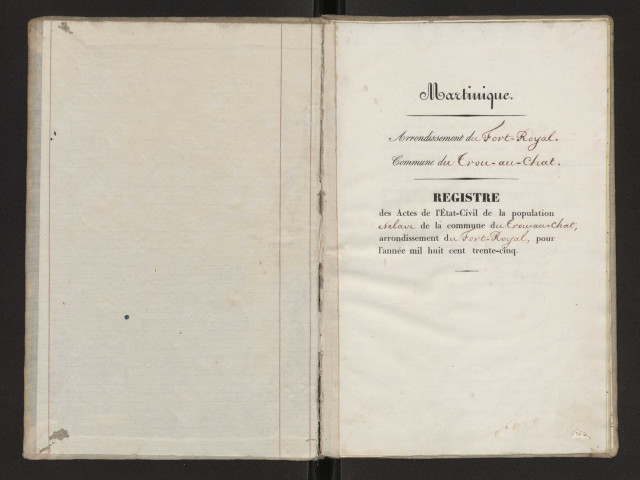 Martinique.
Arrondissement du Fort-Royal.
Commune du Trou-au-Chat.
REGISTRE
des Actes de l'État-Civil de la population
esclave de la commune du Trou-au-Chat,
arrondissement du Fort-Royal, pour
l'année mil huit cent trente-cinq.